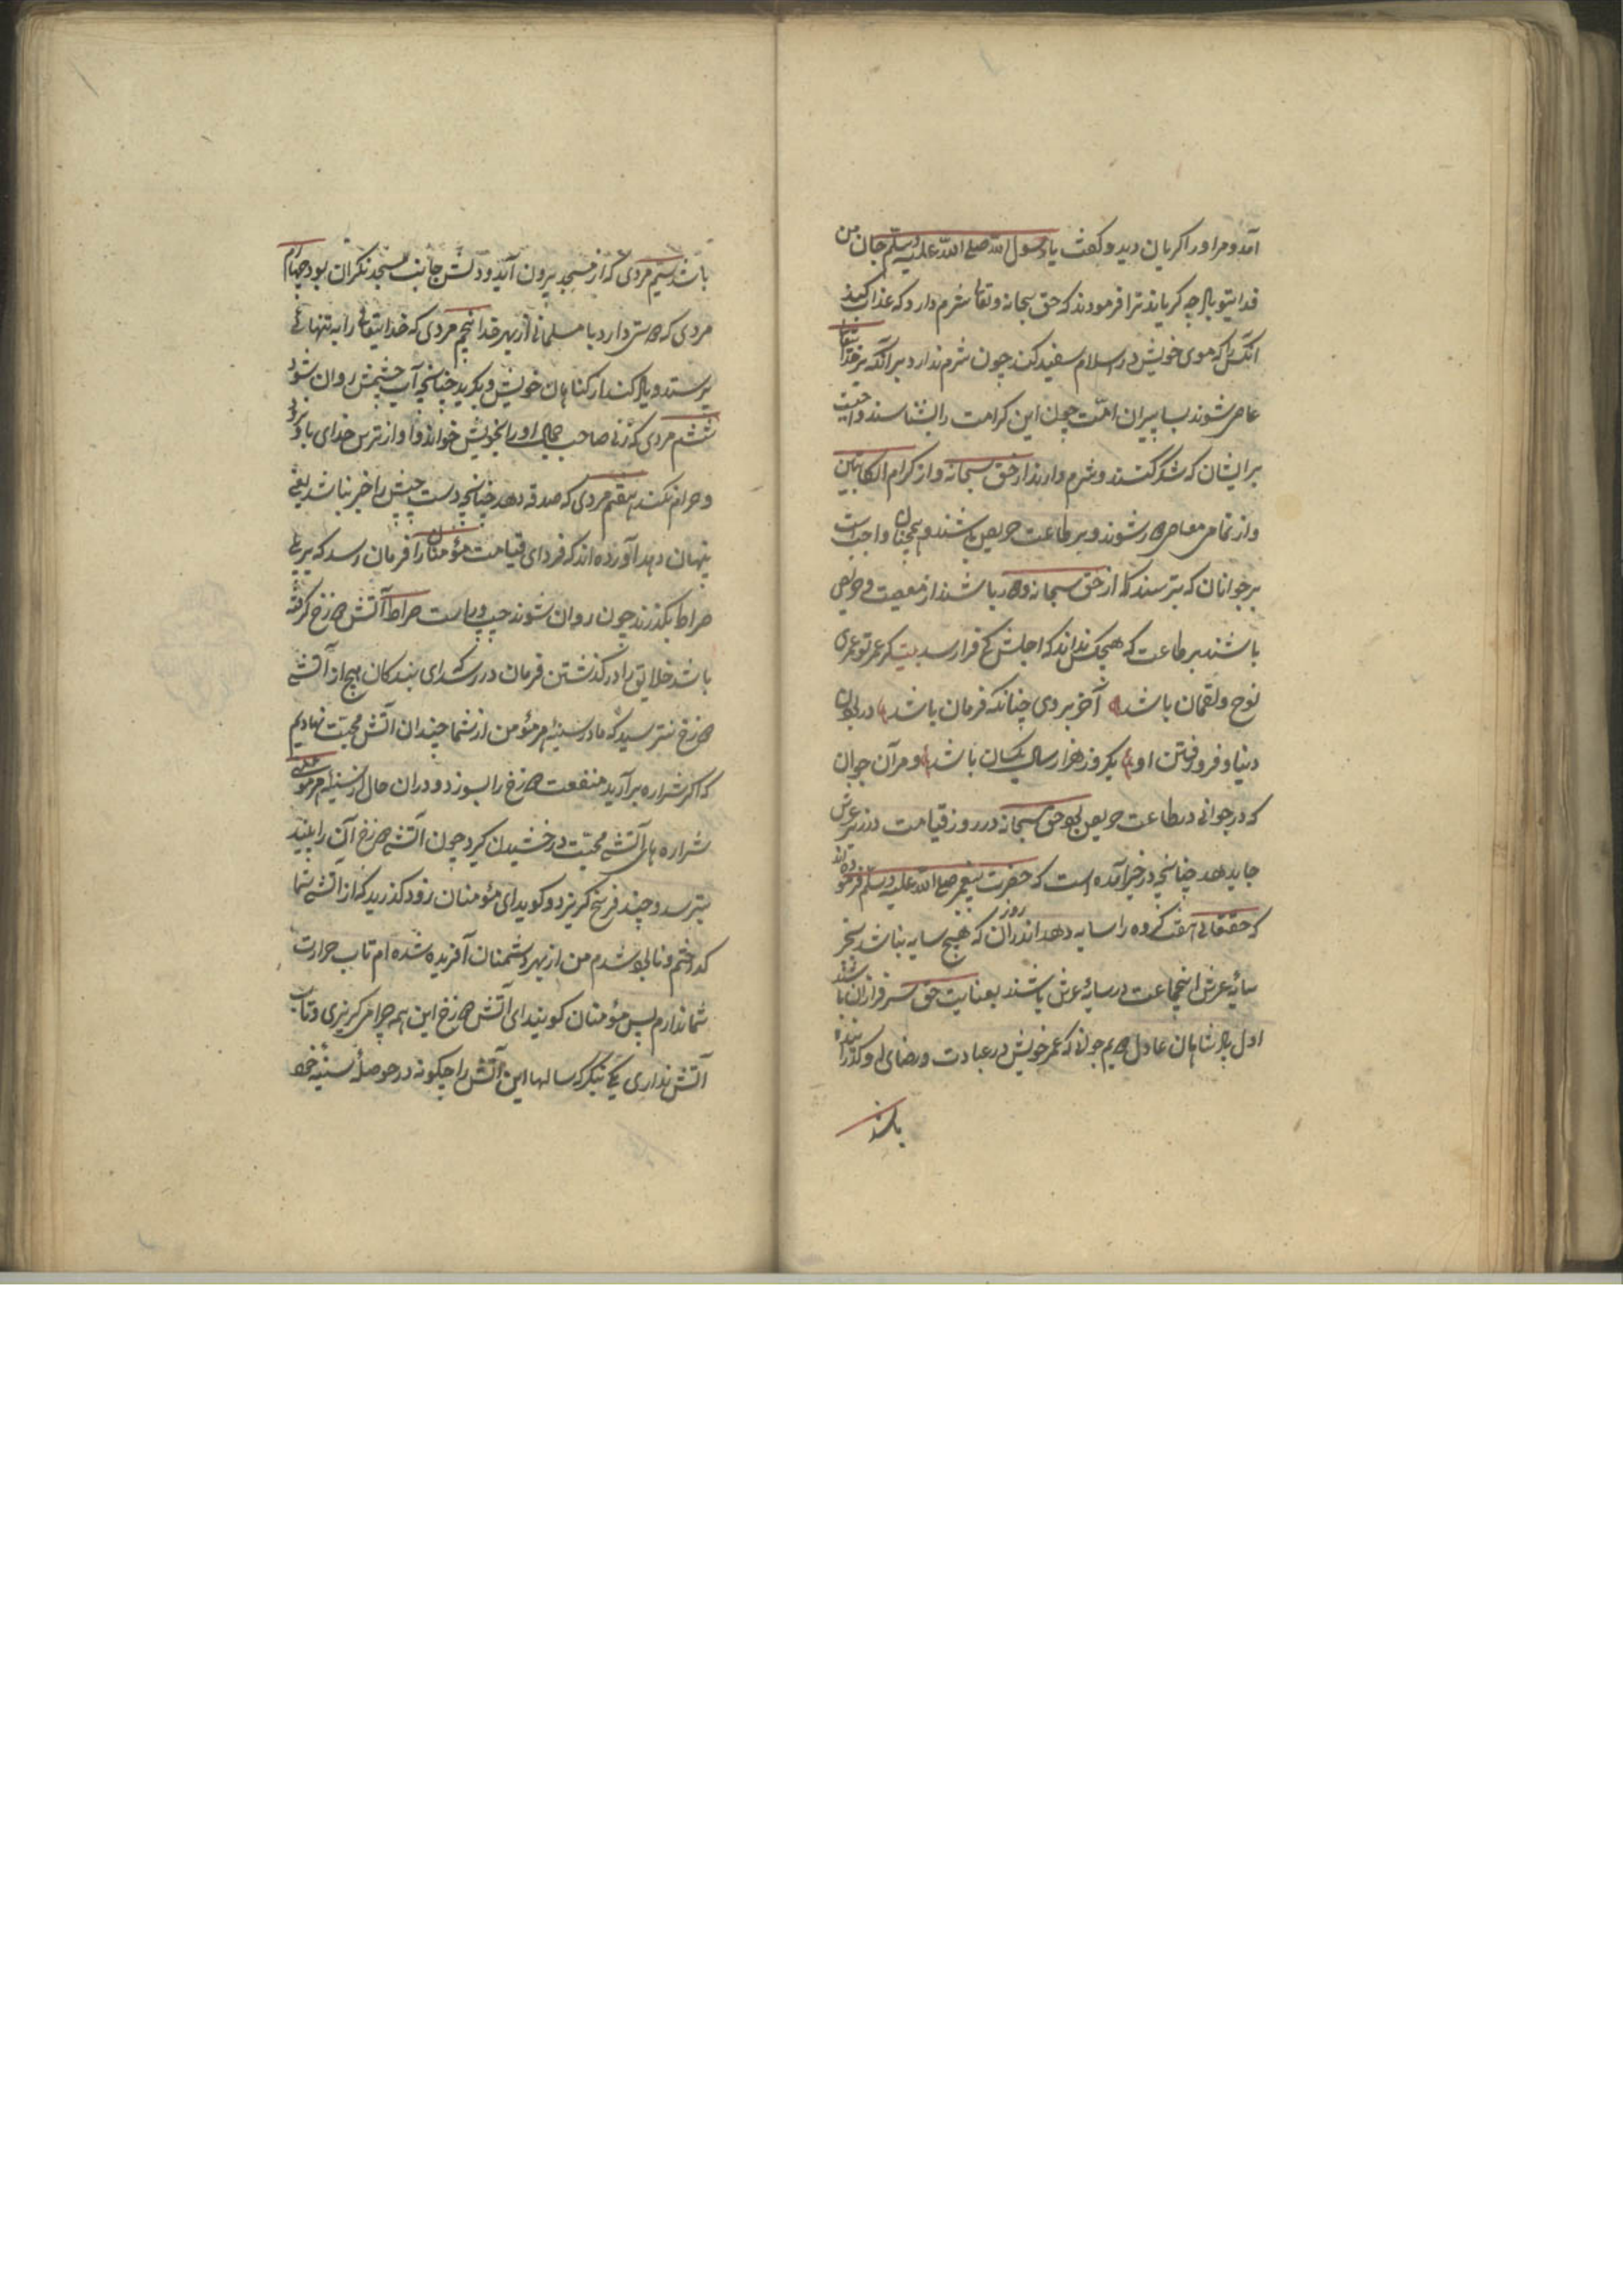 آمد و مر او را کریان دید و کفت یا رسول الله صلی الله علیه وسلم جان من
فدای تو باد چه کریاند ترا فرمودند که حق سبحانه وتعالی شرم دارد که عذاب کند
آنکس را که موی خویش در اسلام سفید کند چون شرم ندارد بر آنکه بر خدایتعالی
عاصی شوند بسا پیران امت چون این کرامت را بشناسند واجبست
بر ایشان که شکر کنند و شرم دارند از حق سبحانه و از کرام الکاتبین
و از تمامی معاصی دور شوند و بر طاعت حریص باشند و همچنان واجب است
بر جوانان که بترسند از حق سبحانه و دور باشند از معصیت و حریص
باشند بر طاعت که هیچکس نداند که اجلش کی فرا رسد بیت کر عمر تو عمر
نوح و لقمان باشد آخر بروی چنانکه فرمان باشد در بودن
دنیا و فرو رفتن او یکروز و هزار سال یکسان باشد و مر آن جوان
که در جوانی در طاعت حریص بود حق سبحانه در روز قیامت در زیر عرش
جای دهد چنانچه در خبر آمده است که حضرت پیغمبر صلی الله علیه وسلم فرموده اند
که حقتعالی هفت کروه را سایه دهد اندر آن روز که هیچ سایه نباشد بجز
سایه عرش این جماعت در سایه عرش باشند بعنایت حق سرفرازان باشند
اول پادشاهان عادل دویم جوانی که عمر خویش در عبادت و رضای او کذرانیده
باشد
باشد سیم مردی که از مسجد بیرون آید و دلش جانب مسجد نکران بود چهارم
مردی که دوستی دارد با مسلمانی از بهر خدا پنجم مردی که خدایتعالی را به تنهائی
پرستد و یاد کند از کناهان خویش و بکرید چنانچه آب چشمش روان شود
ششم مردی که زنی صاحب جمال او را بخویش خواند و او از ترس خدای با وی نرود
و حرام نکند هفتم مردی که صدقه دهد چنانچه دست چپش را خبر نباشد یعنی
پنهان دهد آورده اند که فردای قیامت مؤمنان را فرمان رسد که بر پل
صراط بکذرند چون روان شوند چپ و راست صراط آتش دوزخ کرفته
باشد خلایق را در کذشتن فرمان در رسد که ای بندکان هیچ از آتش
دوزخ نترسید که ما در سینه مر مؤمن از شما چندان آتش محبت نهادیم
که اکر شراره برآرید هفت دوزخ را بسوزد و در آن حال از سینه هر مؤمنی
شراره های آتش محبت درخشیدن کیرد چون آتش دوزخ آن را بیند
بترسد و چند فرسخ کریزد و کوید ای مؤمنان زود کذرید که از آتش شما
کداختم و نابود شدم من از بهر دشمنان آفریده شده ام تاب حرارت
شما ندارم پس مؤمنان کویند ای آتش دوزخ این همه چرا می کریزی و تاب
آتش نداری یکی بنکر که سالها این آتش را چکونه در حوصله سینه خود